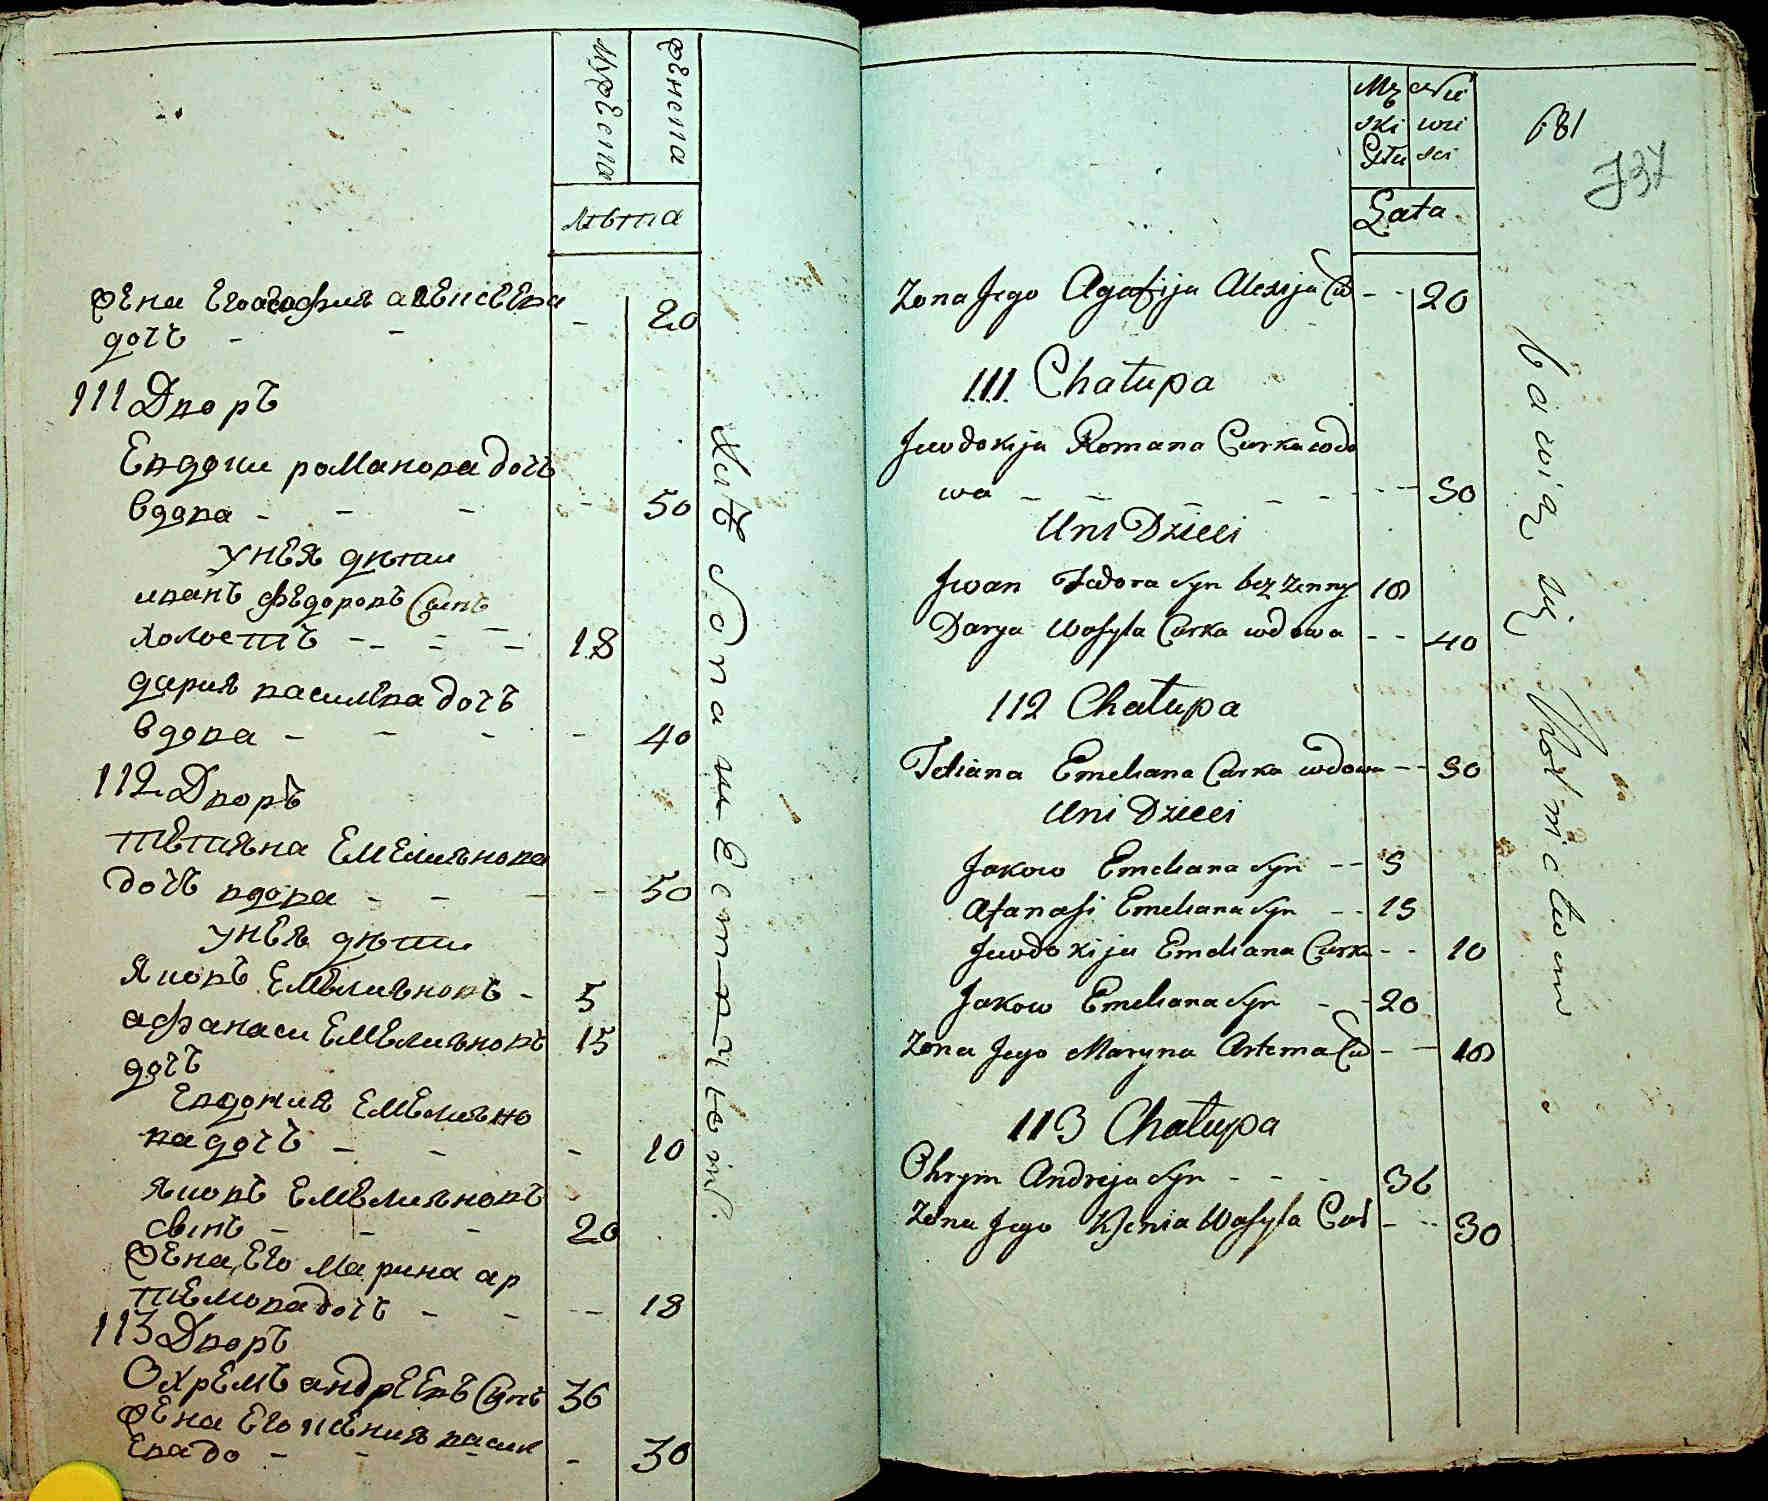 мужеска
женска
лѣта
жена Его агафия алексѣева
дочь - - - 20
111 Дворъ
Евдокия романова дочь
вдова - - - - 50
у нея дѣти
иванъ федоровъ Сынъ
холостъ - - - 18
дария василева дочь
вдова - - - - 40
112 Дворъ
тетияна Емелиянова
дочь вдова - - - - 50
у нея дѣти
Яковъ Емелияновъ - 5
афанаси Емелияновъ 15
дочь
Евдокия Емелияно
ва дочь - - - 10
яковъ Емелияновъ
свинъ - - - 20
жена Его Марина ар
темова дочь - - - 18
113 Дворъ
Охремъ андреевъ Сынъ 36
жена Его ксения васил
ева до - - - 30
Mę ski Płci
Niewieści
681
737
Lata
Zona Jego Agafija Alexija Cór - - 20
111 Chałupa
Jewdokija Romana Curka wdo
wa - - - - - - 50
U ni Dzieci
Jwan Fedora Syn bez zenny 18
Darya Wasyla Curka wdowa - - 40
112 Chałupa
Teliana Emeliana Curka wdowa - - 50
U ni Dzieci
Jakow Emeliana Syn - - 5
Afanasi Emeliana Syn - - 15
Jewdokija Emeliana Curka - - 10
Jakow Emeliana Syn - - 20
Zona Jego Maryna Artema Cór - - 18
113 Chałupa
Ohrym Andreja Syn - - - 36
Zona Jego Xsenia Wasyla Cór - - 30
bawią się Rolnictwem